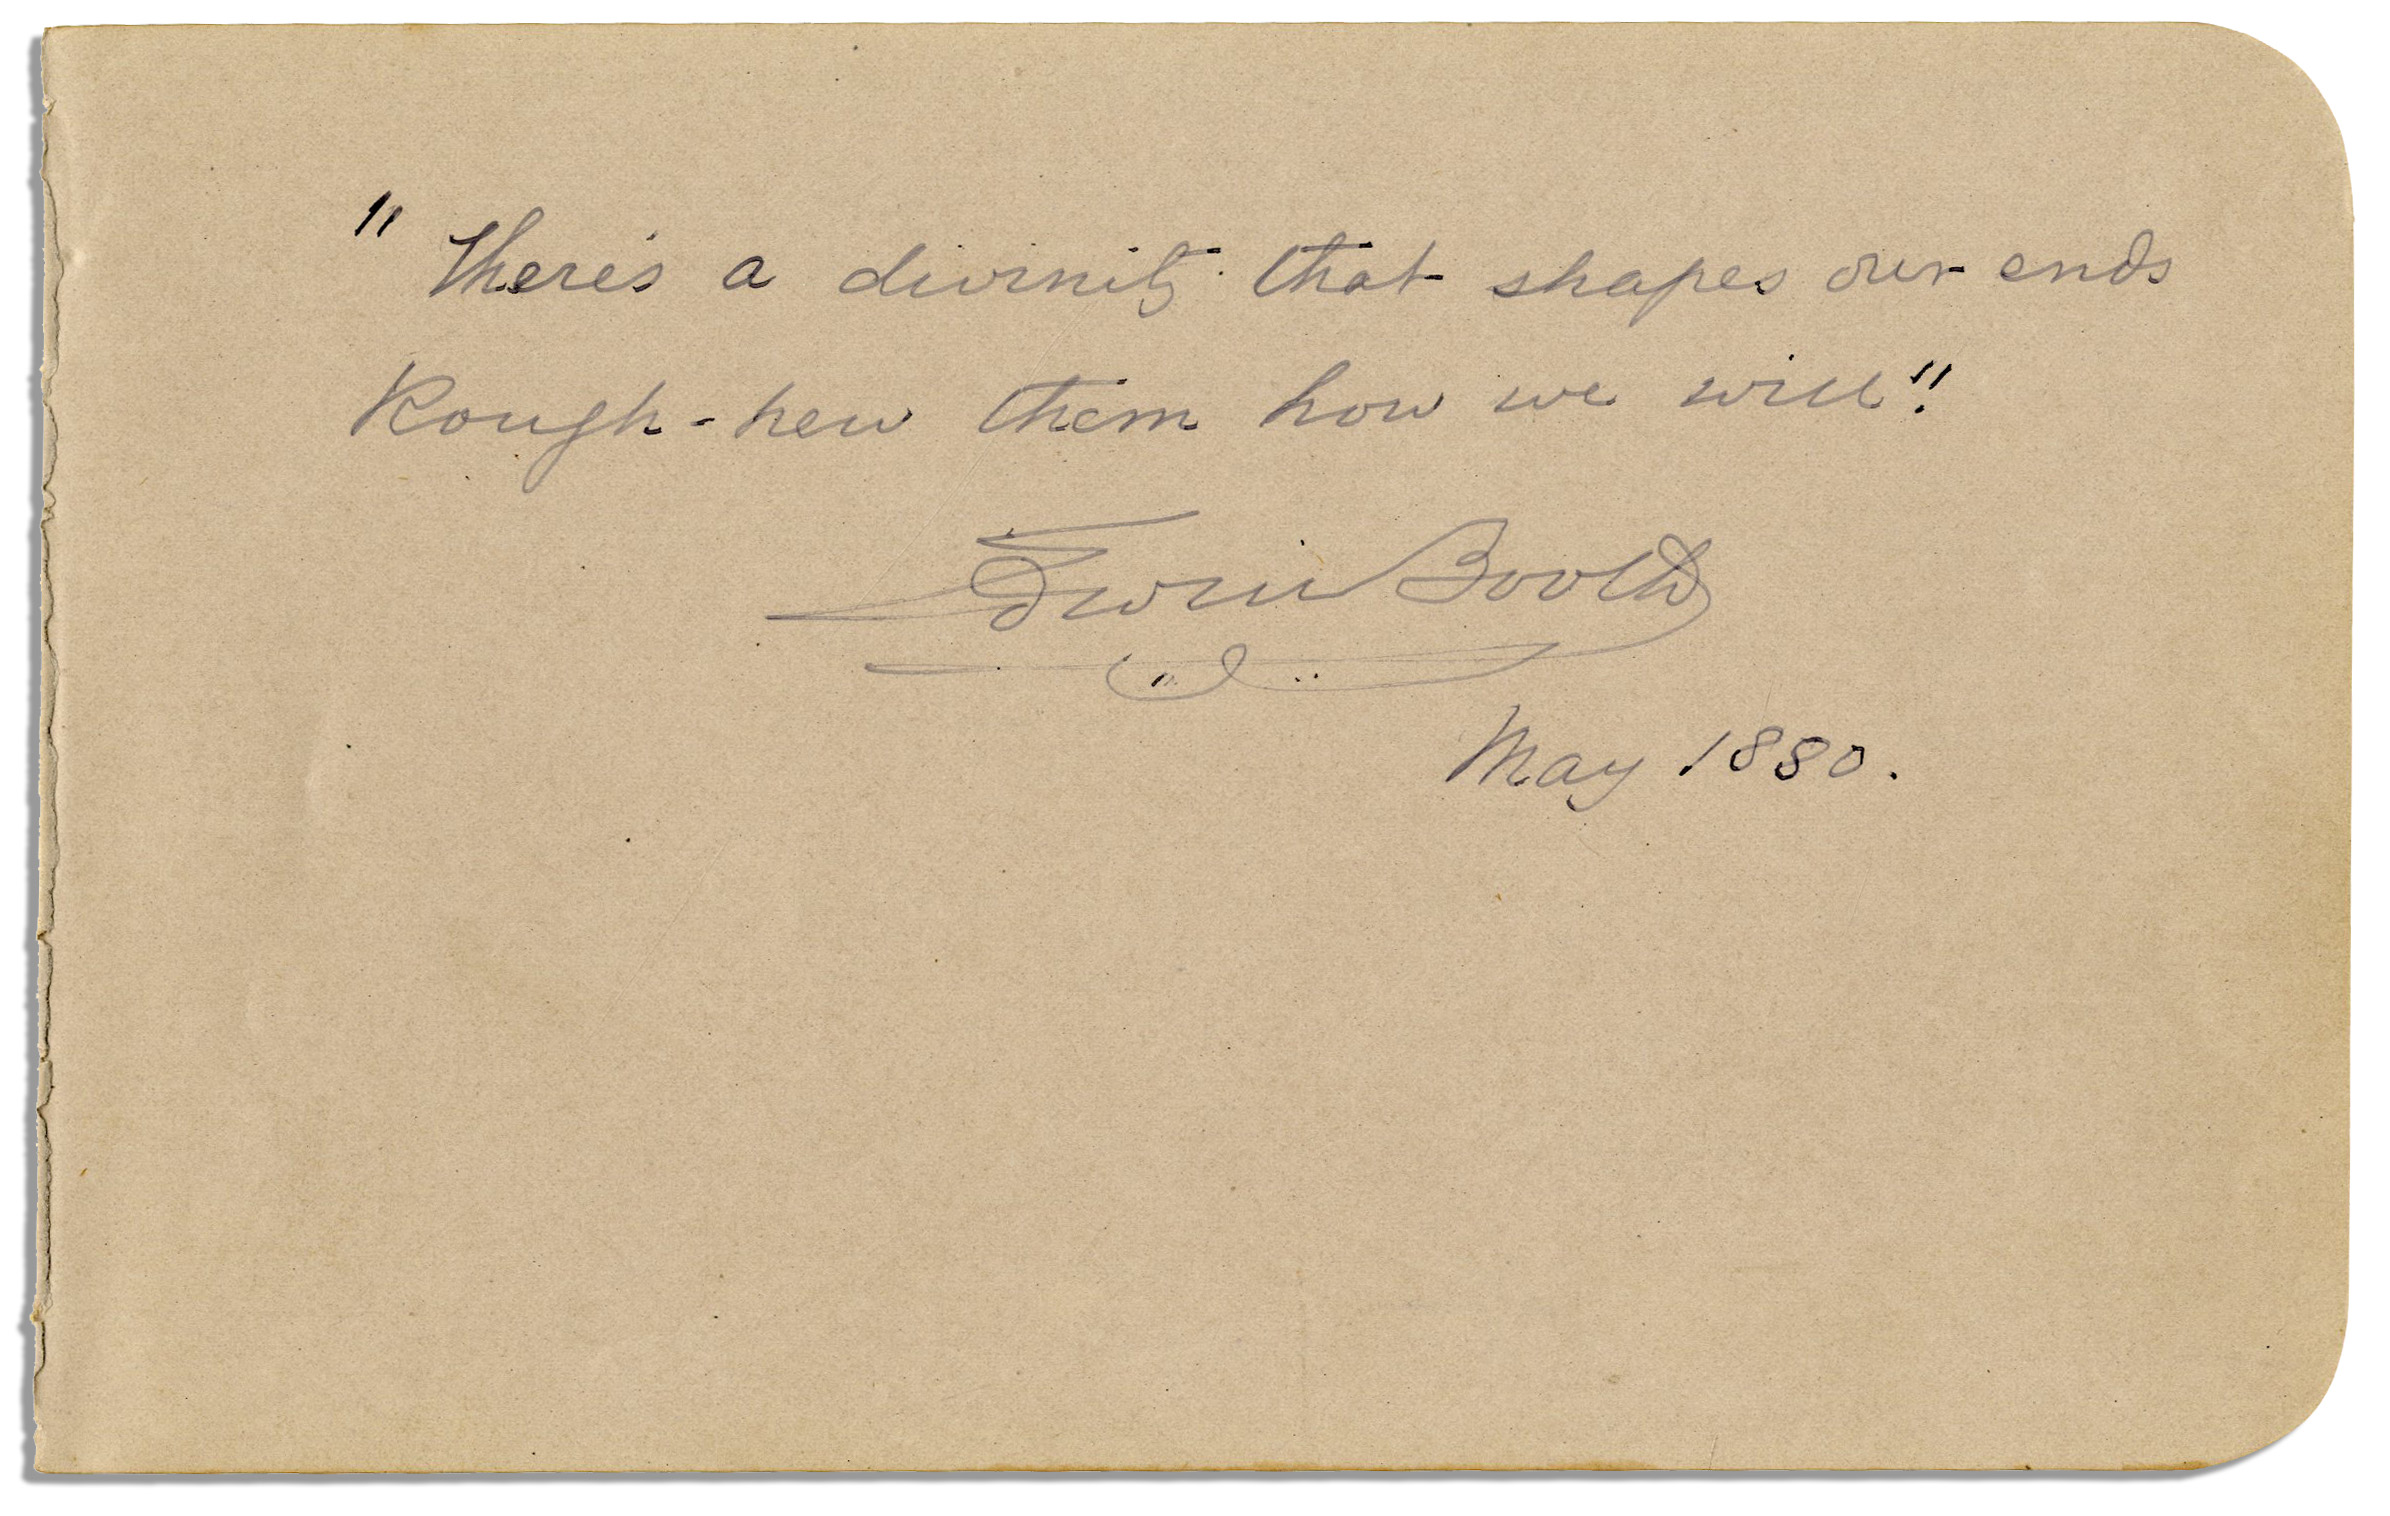 "There's a divinity that shapes our ends
Rough-hew them how we will".
Edwin Booth
May 1880.